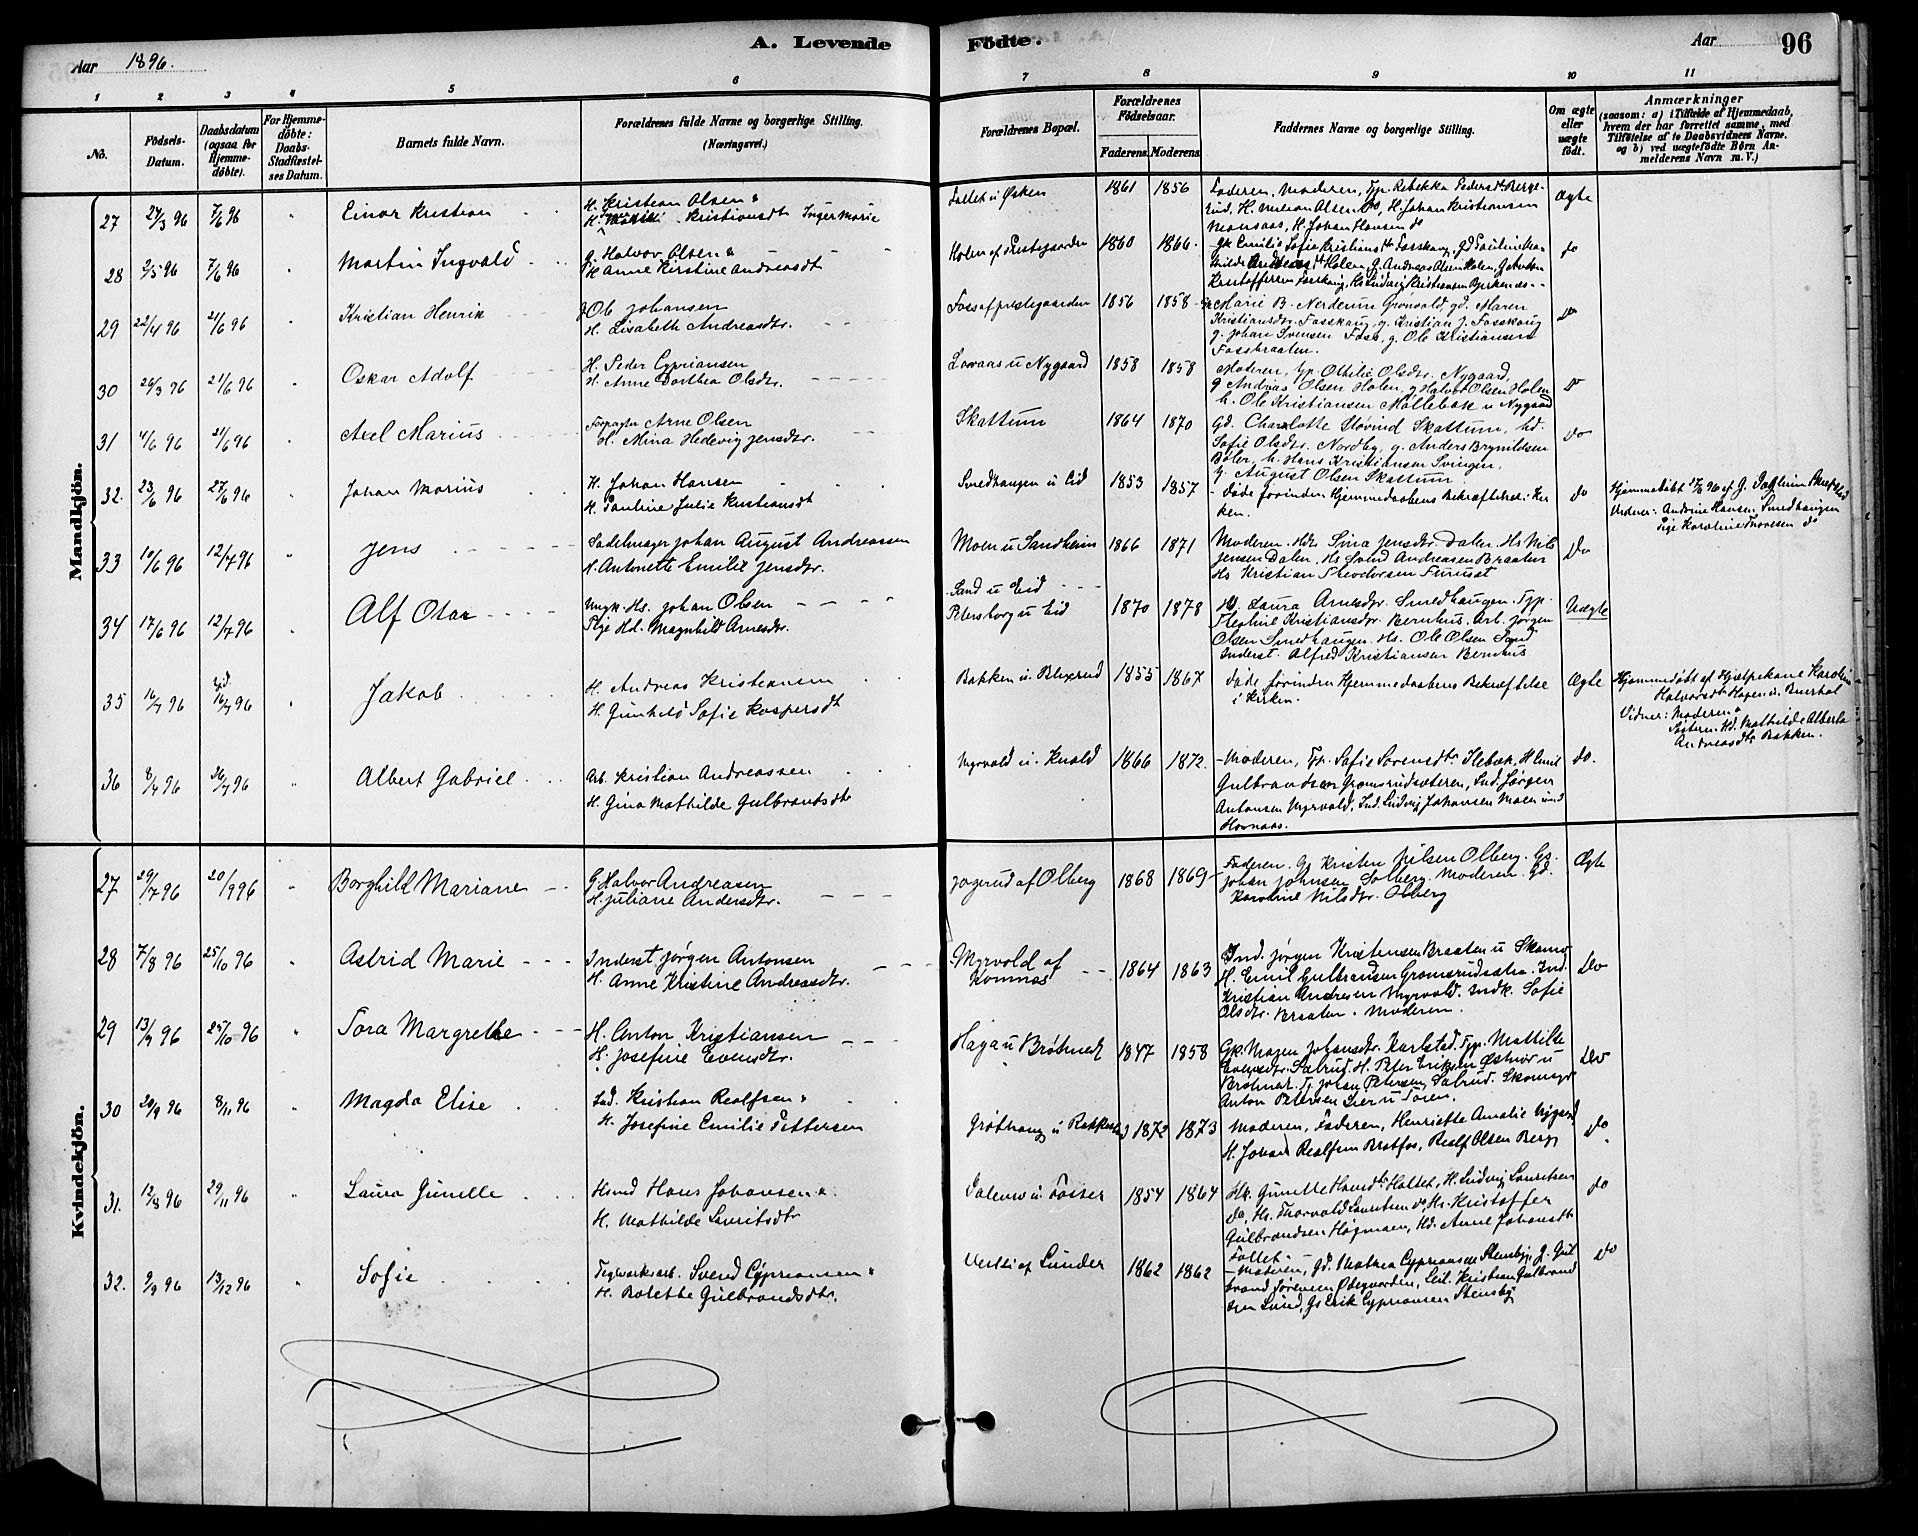 A. Levende Födte.
Aar 1896.
Aar 96
1 2 3 4 5 6 7 8 9 10 11
No.
Födsels-Datum.
Daabsdatum (ogsaa for Hjemme-döbte).
For Hjemme-döbte: Daabs-Stadfæstel-ses Datum.
Barnets fulde Navn.
Forældrenes fulde Navne og borgerlige Stilling. (Næringsvei.)
Forældrenes Bopæl.
Forældrenes Födselsaar.
Faderens. Moderens.
Faddernes Navne og borgerlige Stilling.
Om ægte eller uægte födt.
Anmærkninger
(saasom: a) i Tilfælde af Hjemmedaab, hvem der har forrettet samme, med Tilföielse af to Daabsvidners Navne, og b) ved uægtefödte Börn An-melderens Navn m. V.)
Mandkjön.
27 24/3 96 7/6 96 " Einar Kristian
H. Kristian Olsen &
H. Kristiansdt Inger Marie
1861 1856
Faderen, Moderen, Tp. Rebekka Pedersdt
H. Johan Kristiansen
H. Johan Hansen do
Ægte
28 2/5 96 7/6 96 " Martin Ingvald
g. Halvor Olsen &
Anne Kirstine Andreasdt
Holen af Prestegaarden 1860 1866.
Gk Emilie Sofie Kristiansdt Fosskaug, Gd Pauline Ma-
thilde Andreasdt Holen, G. Andreas Olsen Holen, G. Anton
Kristoffersen Fosskaug, Hs Ludvig Kristiansen
do
29 22/4 96 21/6 96 " Kristian Henrik
g Ole Johansen
H. Lisabeth Andreasdtr.
Foss af prestegaarden 1856 1858
Marie B. Nerdrum Grønvold, gd. Maren
Kristiansdtr. Fosskaug, g. Kristian J. Fosskaug
g. Johan Svensen Foss, g. Ole Kristiansen
Fossbraaten.
Do
30 26/3 96 21/6 96 " Oskar Adolf
H. Peder Cypriansen
H. Anne Dorthea Olsdtr.
Lovaas u Nygaard 1858 1858
Moderen, tp. Ottilie Olsdtr. Nygaard,
g Andreas Olsen Holen, g Halvor Olsen Holen
h. Ole Kristiansen Möllebæk u Nygaard
Do
31 4/6 96 21/6 96 " Axel Marius
Forpagter Arne Olsen
H. Mina Hedevig Jensdtr.
Skattum 1864 1870
Gd. Charlotte Støvind Skattum, hd.
Sofie Olsdtr. Nordby, g. Anders Brynildsen
Böler, h. Hans Kristiansen Svingen,
g. August Olsen Skattum
Do
32. 23/6 96 27/6 96 " Johan Marius
H. Johan Hansen
H. Pauline Julie Kristiansdt
Smedhaugen u Eid 1853 1857
- Døde forinden Hjemmedaabens Bekræftelse i Kir
ken.
do
Hjemmedøbt
Vidner: Antonie Hansen Smedhaugen
Pige Karoline Thoresen do
33 10/6 96 12/7 96 " Jens
Sadelmager Johan August Andreassen
H. Antonette Emilie Jensdtr.
Moen u Sandheim 1866 1871
Moderen. Hd. Lina Jensdtr. Dalen. Hs Nils
Jensen Dalen, Hs Svend Andreasen Braaten
Hs Kristian Theodorsen Furuset
Do
34 17/6 96 12/7 96 " Alf Otar
Ungk. Hs. Johan Olsen
Pige Hd. Magnhild Arnesdtr.
Sand u Eid
Petersborg u Eid 1870 1878
Hd. Laura Arnesdtr. Smedhaugen. Tjp.
Kristiansdtr. Bernhus. Arb. Jørgen
Olsen Smedhaugen. Hs. Ole Olsen Sand
Inderst. Alfred Kristiansen Bernhus
Uægte
35 16/7 96 16/7 96 " Jakob
H. Andreas Kristiansen
H. Gunhild Sofie Kaspersdt
Bakken u Blixrud 1855 1867
Døde forinden Hjemmedaabens Bekræftelse
i Kirken.
Ægte
Hjemmedøbt af Hjælpekone Karoline
Halvorsdt Hagen u
Vidner: Moderen &
Søsteren Hd. Mathilde Alberta
Andreasdtr Bakken.
36 8/4 96 26/7 96 " Albert Gabriel
Arb. Kristian Andreassen
H. Gina Mathilde Gulbrandsdt
Myrvold u. 1866 1872.
- Moderen, Tp. Sofie Sorensdt Ilebæk, H Emil
Gulbrandsen Gromsrudsæteren, Ind. Jørgen
Antonsen Myrvold, Ind. Ludvig Johansen Moen und
do.
Kvindekjön.
27 29/7 96 20/9 96 " Borghild Mariane
G. Halvor Andreasen
H. Juliane Andersdtr.
Jogerud af Olberg 1868 1869
Faderen. Gs Kristen Nilsen Olberg. Gs.
Johan Johnsen Solberg. Moderen. Gd.
Karoline Nilsdtr. Olberg
Ægte
28 7/8 96 25/10 96 " Astrid Marie
Inderst Jörgen Antonsen
H. Anne Kristine Andreasdtr.
Myrvold af
Komnæs 1864 1863
Ind. Jörgen Kristensen Braaten u
H. Emil Gulbransen Gromsrudsætra. Ind.
Kristian Andresen Myrvold. Indk. Sofie
Olsdtr. Braaten. Moderen.
Do
29 13/9 96 25/10 96 " Tora Margrethe
H. Anton Kristiansen
H. Josefine Evensdtr.
Haga u Bröhnet 1847 1858
Gk. Magen Johansdtr. Karlstad. Tjp. Mathilde
Evensdtr. Salrud. H. Peter Eriksen Østmor u
Brötnet. Tj. Johan Petersen Salrud. Skomager
Anton Petersen Lier u Toren.
Do
30 29/9 96 8/11 96 " Magda Elise
Ind. Kristian Realfsen &
H. Josefine Emilie Pettersen
Grøthaug u 1872 1873
Moderen, Faderen, Henriette Amalie Nygaard
H. Johan Realfsen Bratfos, Realf Olsen Berg,
do.
31. 12/8 96 29/11 96 " Laura Gunelle
Hmd Hans Johansen &
H. Mathilde Lauritsdtr
u Fosser 1854 1864
Hk. Gunelle Hansdt Holtet, H. Ludvig Lauritsen
do, Hs. Thorvald Lauritsen do, Hs. Kristoffer
Gulbrandsen Høgmoen, Hd. Anne Johansdt
Follet.
do
32. 9/9 96 13/12 96 " Sofie
Teglværksarb. Svend Cypriansen &
H. Bolethe Gulbrandsdtr.
af Lunder 1862 1862
- Moderen, Gd. Mathea Cypriansen Stensby, G. Gul
brand Sörensen Ödegaarden, Leil. Kristian Gulbrand
sen Lund, Gs Erik Cypriansen Stensby
do